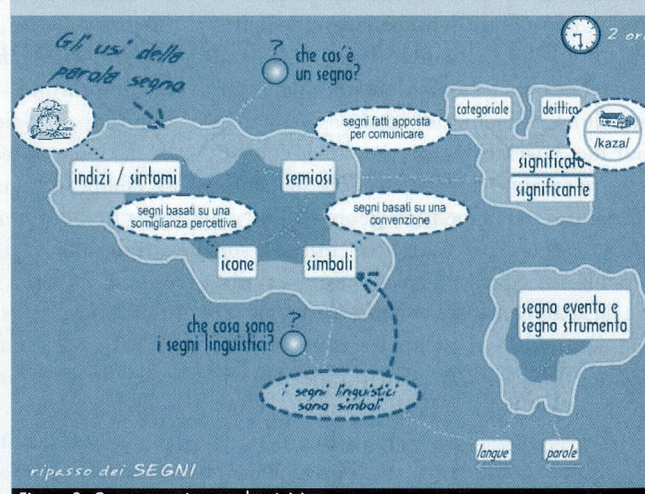 Gli usi della
parola segno
?
che cos'è
un segno?
2 or
categoriale
deittico
segni fatti apposta
per comunicare
/kaza/
significato
significante
indizi / sintomi
semiosi
segni basati su una
somiglianza percettiva
segni basati su una
convenzione
icone
simboli
segno evento e
segno strumento
che cosa sono
i segni linguistici?
?
i segni linguistici
sono simboli
langue
parole
ripasso dei SEGNI